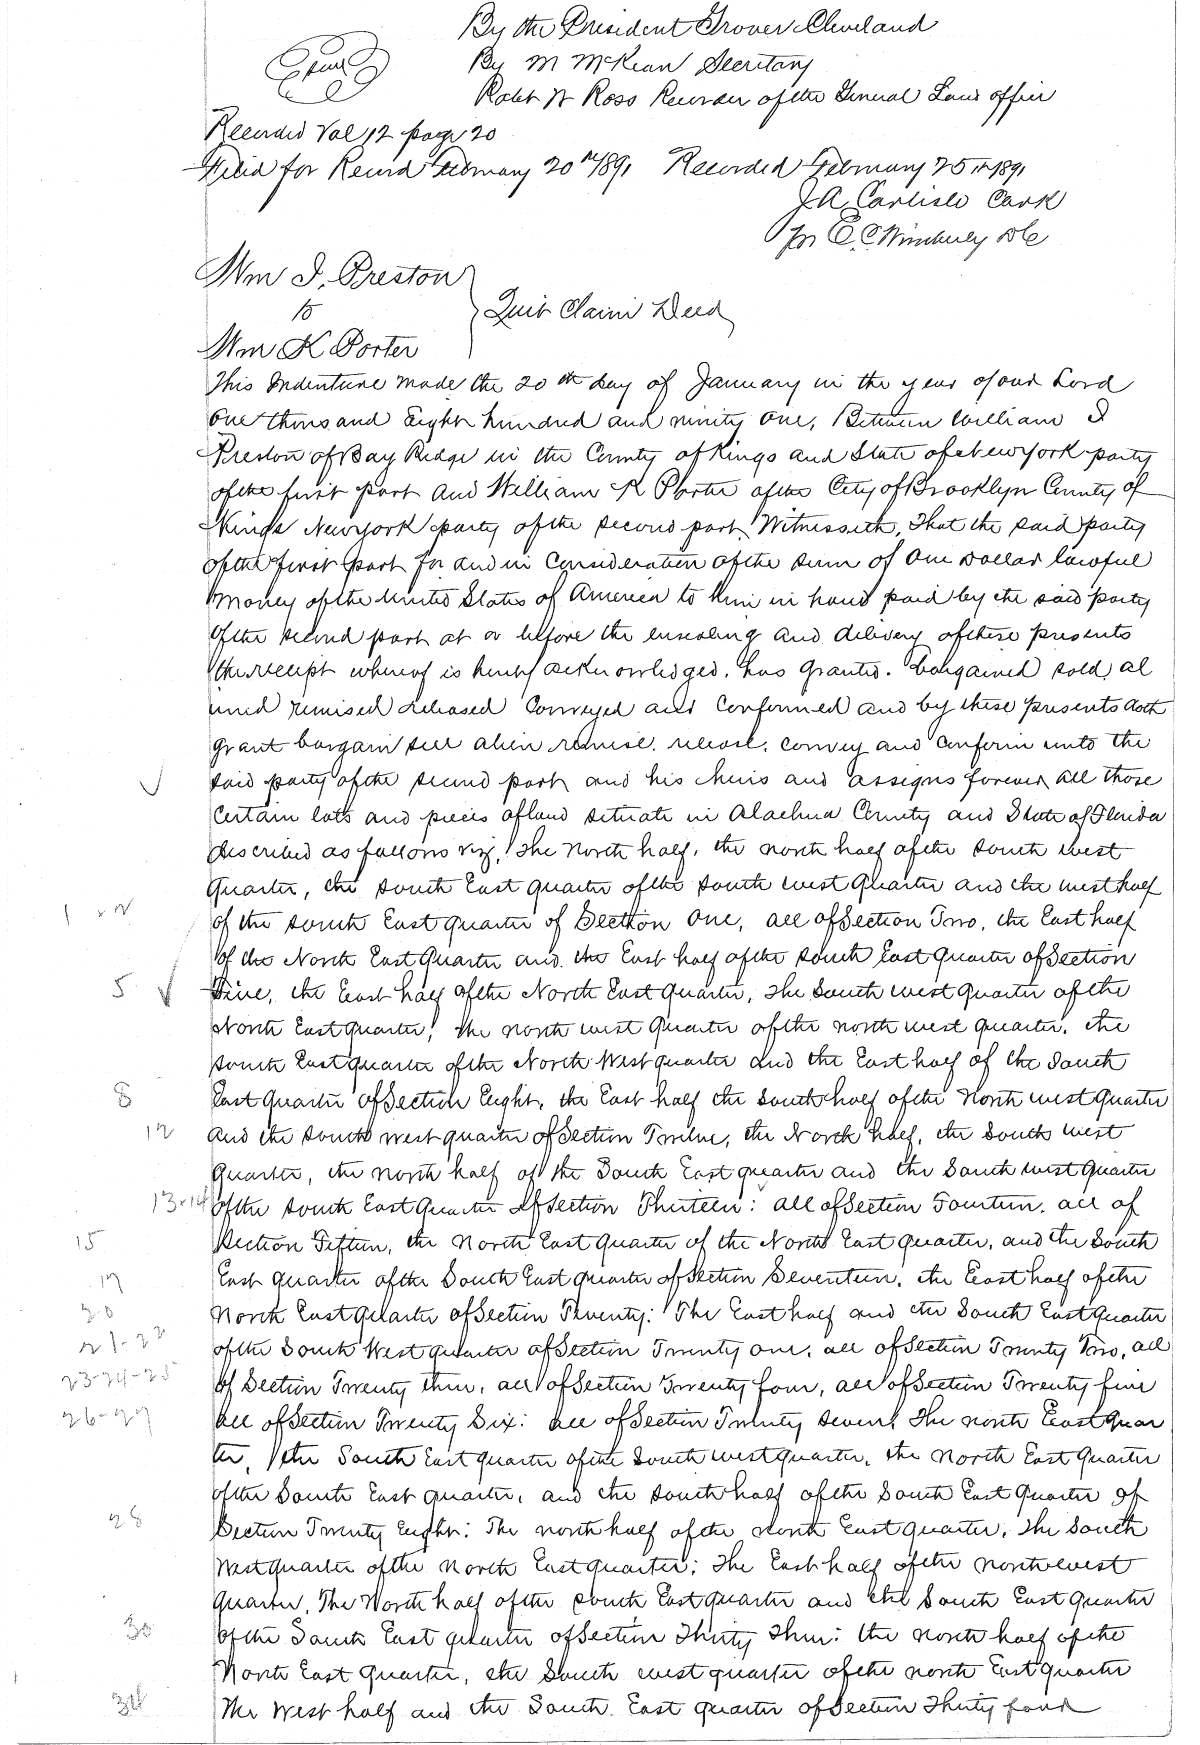 By the President Grover Cleveland
Seal
By M McKean Secretary
Robt W Ross Recorder of the General Land office
Recorded Vol 12 page 20
Filed for Record February 20th 1891 Recorded February 25th 1891
J A Carlisle Clerk
per E. C. Wimberly DC
Wm I. Preston
to
Quit Claim Deed
Wm K Porter
This Indenture made the 20th day of January in the year of our Lord
one thousand Eight hundred and ninety one, Between William I
Preston of Bay Ridge in the County of Kings and State of New york party
of the first part and William K Porter of the City of Brooklyn County of
Kings New york party of the second part, Witnesseth, That the said party
of the first part for and in Consideration of the sum of One Dollar lawful
Money of the United States of America to him in hand paid by the said party
of the second part at or before the ensealing and delivery of these presents
the receipt whereof is hereby acknowledged, has granted. bargained sold, al
ined remised released Conveyed and Confirmed and by these presents doth
grant bargain sell alien remise. release. convey and Confirm unto the
said party of the second part and his heirs and assigns forever, all those
Certain lots and pieces of land situate in Alachua County and State of Florida
described as follows viz, The North half, the north half of the South west
quarter, the South East quarter of the South west Quarter and the west half
1 & 2
of the South East quarter of Section One, all of Section Two, the East half
of the North East Quarter and the East half of the South East Quarter of Section
5
Five, the East half of the North East Quarter, The South west Quarter of the
North East quarter, the north west Quarter of the north west quarter. the
South East quarter of the North West quarter and the East half of the South
8
East Quarter of Section Eight, the East half the South half of the North west Quarter
12
and the South west quarter of Section Twelve, the North half, the South West
Quarter, the north half of the South East quarter and the South west Quarter
13-14
of the South East Quarter of Section Thirteen: all of Section Fourteen. all of
15
Section Fifteen, the North East Quarter of the North East quarter, and the South
17
East quarter of the South East quarter of Section Seventeen, the East half of the
20
North East Quarter of Section Twenty: The East half and the South East Quarter
21-22
of the South West quarter of Section Twenty one, all of Section Twenty Two, all
23-24-25
of Section Twenty three, all of Section Twenty four, all of Section Twenty five
26-27
all of Section Twenty Six: all of Section Twenty seven, The north East Quar
ter, the South East quarter of the South west quarter, the North East Quarter
of the South East quarter, and the South half of the South East Quarter of
28
Section Twenty Eight: The north half of the North East quarter, The South
West quarter of the North East quarter; The East half of the north west
Quarter, The North half of the South East quarter and the South East quarter
of the South East quarter of Section Thirty Three: the north half of the
North East Quarter, the South west quarter of the north East quarter
34
The West half and the South East quarter of Section Thirty four